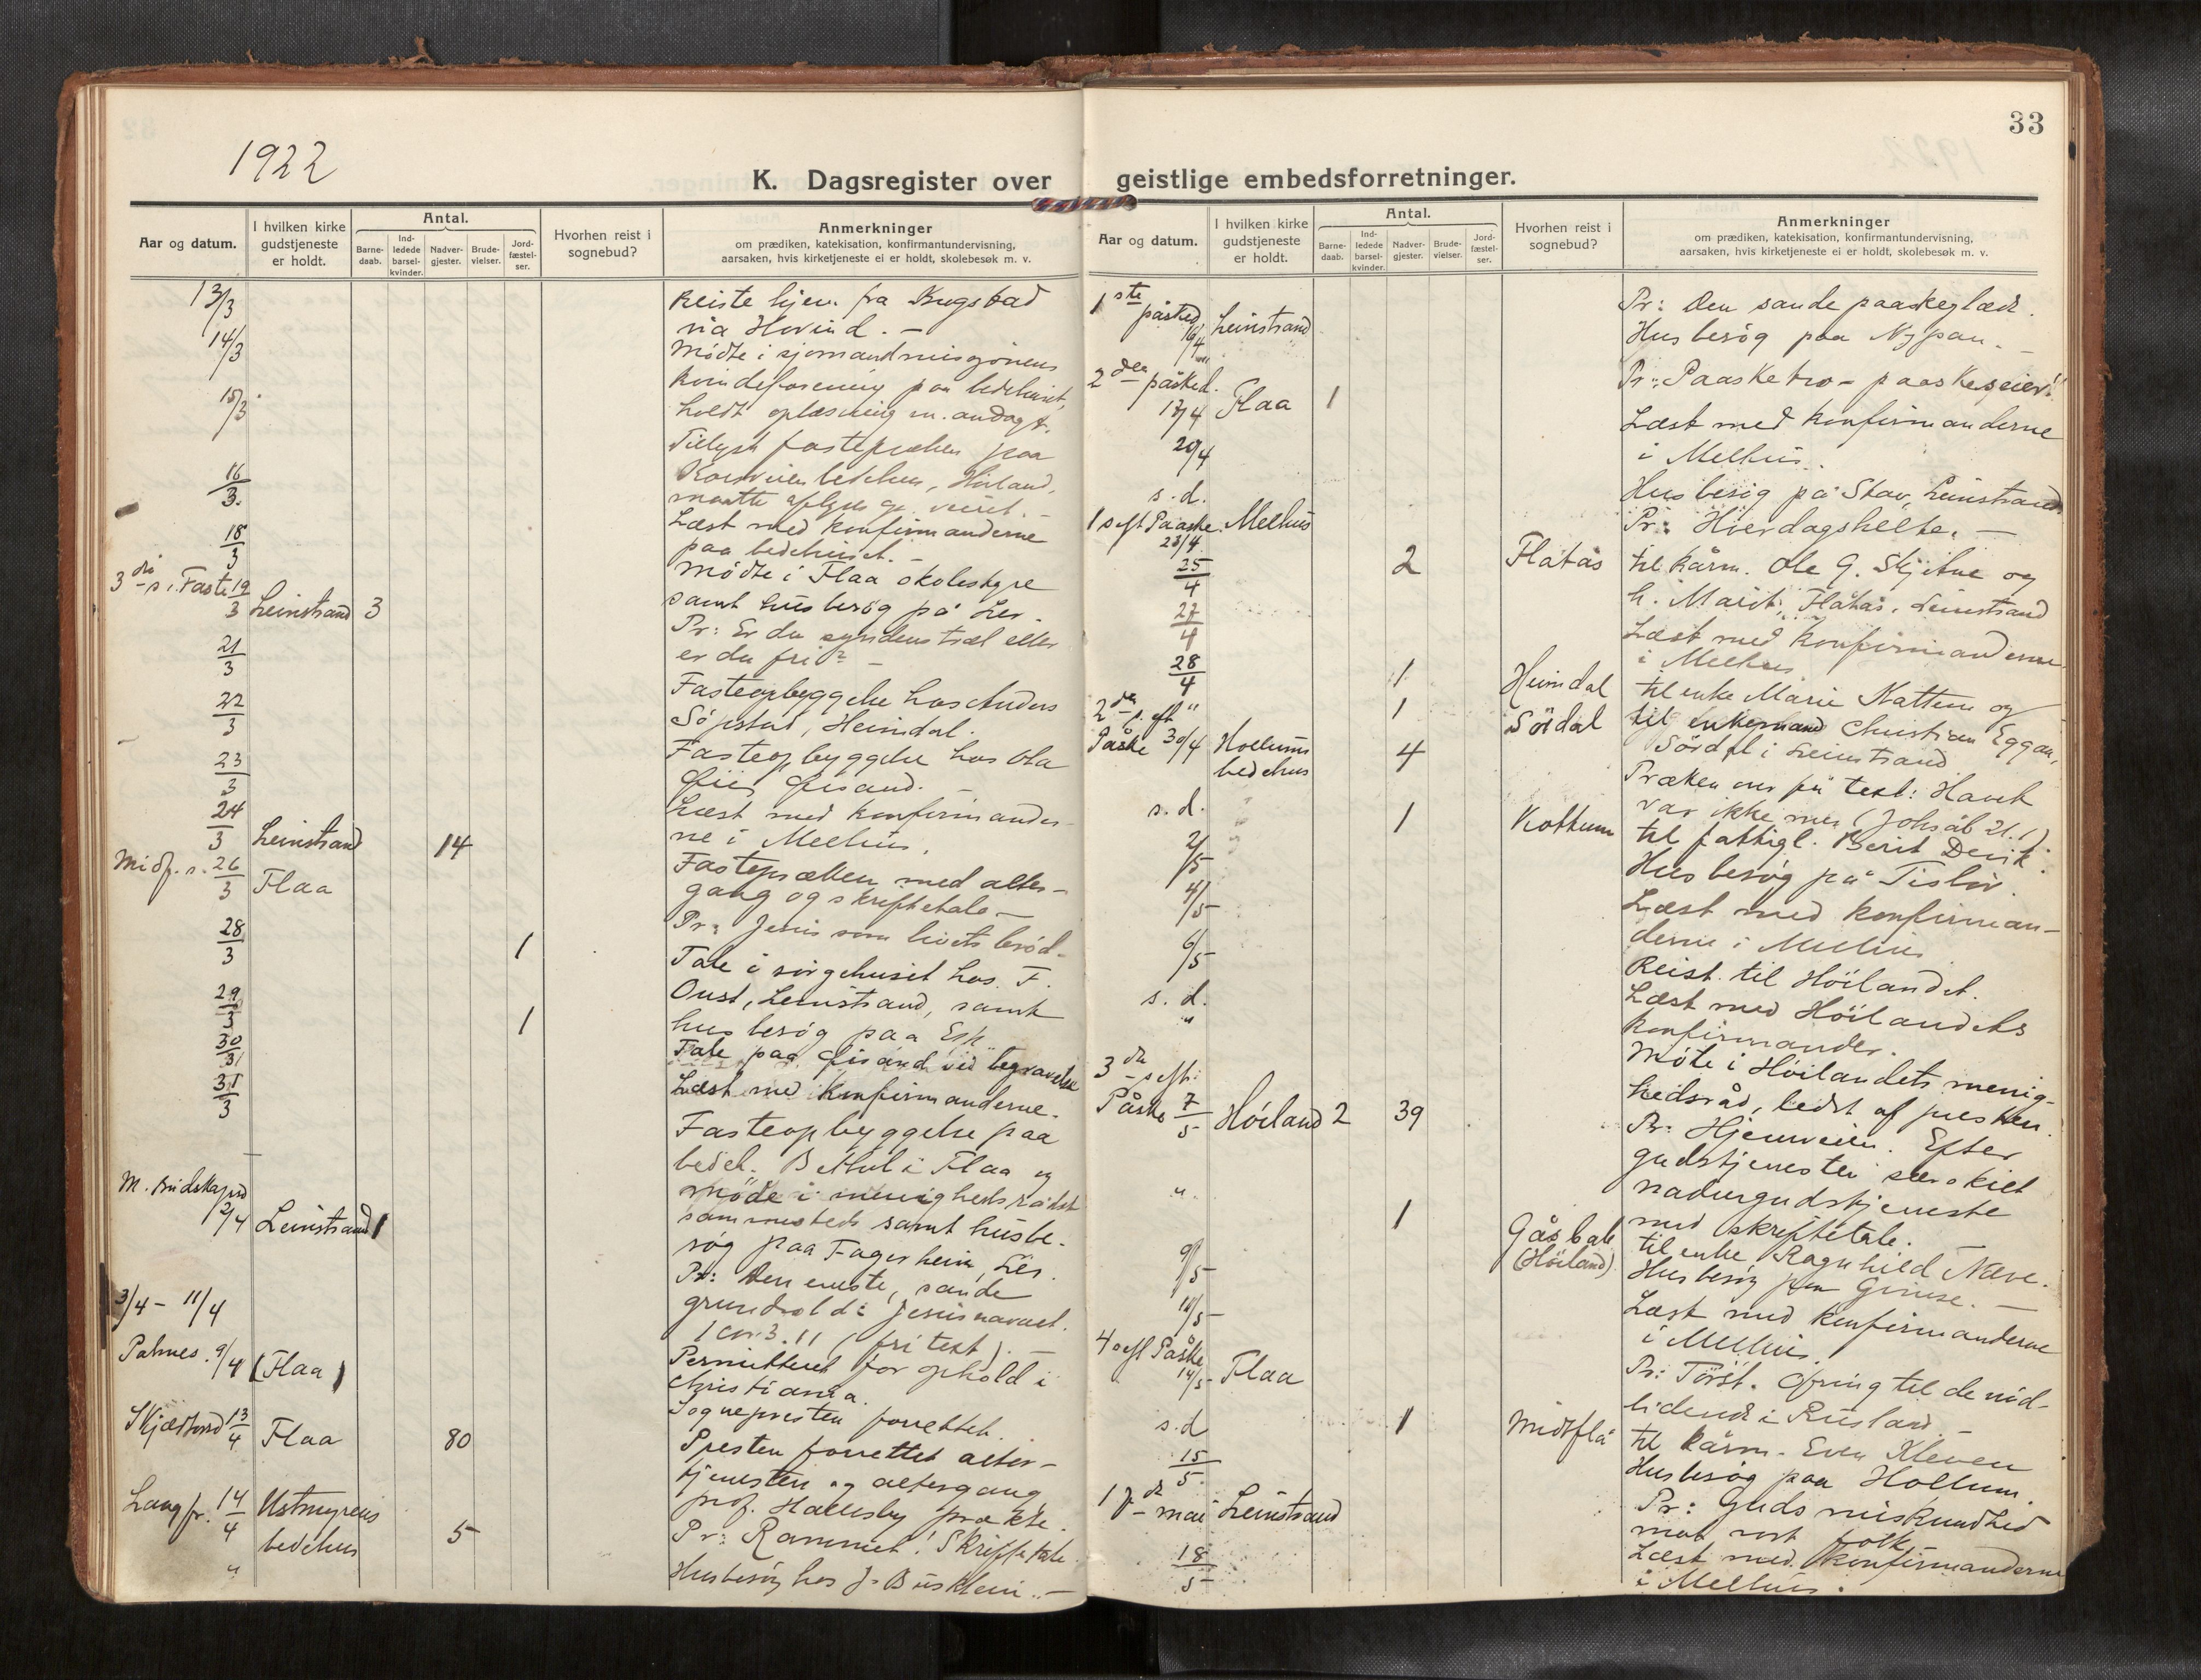 33
1922
K. Dagsregister over geistlige embedsforretninger.
Aar og datum.
I hvilken kirke gudstjeneste er holdt.
Antal.
Barne-daab.
Ind-ledede barsel-kvinder.
Nadver-gjester.
Brude-vielser.
Jord-fæstel-ser.
Hvorhen reist i sognebud?
Anmerkninger
om prædiken, katekisation, konfirmantundervisning,
aarsaken, hvis kirketjeneste ei er holdt, skolebesøk m. v.
13/3 Reiste hjem fra
via Hovind. –
14/3 Mødte i
kvindeforening paa bedehuset,
holdt oplæsning m. andagt.
15/3 Tillyst fastepræken paa
bedehus, Høiland,
maatte
16/3. Læst med konfirmanderne
paa bedehuset. –
18/3 Mødte i Flaa skolestyre
samt husbesøg på Ler.
3die s. i Faste 19/3 Leinstrand 3 Pr: Er du syndens træl eller
er du fri? –
21/3 Fasteopbyggelse hos Anders
Heimdal.
22/3 Fasteopbyggelse hos Ola
23/3 Læst med konfirmander-
ne i Melhus.
24/3 Leinstrand 14 Fastepræken med alter-
gang og skriftetale –
Midf. s. 26/3 Flaa Pr: Jesus som livets brød –
28/3 1 Tale i sørgehuset hos F.
Oust, Leinstrand, samt
husbesøg paa Esp
29/3 1 Tale paa ved begravelse
30/3 Læst med konfirmanderne.
31/3 Fasteopbyggelse paa
bedeh. Bethel i Flaa og
møde i menighedsrådet
sammesteds samt husbe-
søg paa Fagerheim, Ler.
M. Budskapsd 2/4 Leinstrand 1 Pr: Den eneste, sande
grundvold: Jesusnavnet.
1 Cor. 3. 11 (fri text). –
3/4 – 11/4 Permitteret for ophold i
Christiania.
Palmes. 9/4 (Flaa) Sognepresten forrettet.
Skjærtorsd 13/4 Flaa 80 Presten forrettet alter-
tjenesten og altergang
prof. Hallesby prækte.
Langfr. 14/4 Ustmyrens
bedehus 5 Pr: Rammet! Skriftetale.
" Husbesøg hos J. Busklein. –
Aar og datum.
I hvilken kirke gudstjeneste er holdt.
Antal.
Barne-daab.
Ind-ledede barsel-kvinder.
Nadver-gjester.
Brude-vielser.
Jord-fæstel-ser.
Hvorhen reist i sognebud?
Anmerkninger
om prædiken, katekisation, konfirmantundervisning,
aarsaken, hvis kirketjeneste ei er holdt, skolebesøk m. v.
1ste påsked 16/4 Leinstrand Pr: Den sande paaskeglæde.
Husbesøg paa Nypan. –
2den påsked. 17/4 Flaa 1 Pr: Paasketro – paaskeseier!
20/4 Læst med konfirmanderne
i Melhus.
s. d. Husbesøg på Stav, Leinstrand
1 s eft Paaske 23/4 Melhus Pr: Hverdagshelte. –
25/4 2 Flatås til kårm. Ole G. Skjetne og
h. Marit, Flatås, Leinstrand
27/4 Læst med konfirmanderne
i Melhus
28/4 1 Heimdal til enke Marie Kattem og
1 Sördal til enkemand Christian Eggan,
Sördal i Leinstrand
2den s. eft Påske 30/4 Hollums
bedehus 4 Præken over fri text: Havet
var ikke mer (Johs åb 21.1)
s. d. 1 Kottum til fattigl. Berit
2/5 Husbesøg på Tislöv.
4/5 Læst med konfirman-
derne i Melhus
6/5 Reist til Höilandet.
s. d. Læst med Höilandets
konfirmander.
" Möte i Höilandets menig-
hedsråd, ledet af presten.
3die s eft. Påske 7/5 Höiland 2 39 Pr: Hjemveien. Efter
gudstjenesten særskilt
nadvergudstjeneste
med skriftetale.
" 1 Gåsbak
(Höiland) til enke Ragnhild Næve.
9/5 Husbesøg paa Gimse. –
11/5 Læst med konfirmanderne
i Melhus.
4 s eft Påske 14/5 Flaa Pr: Törst. Ofring til de nød-
lidende i Rusland –
s. d 1 Midtflå til kårm. Even Kleven
15/5. Husbesøg paa Hollum.
17de mai Leinstrand Pr: Guds miskundhed
mot vort folk
18/5 Læst med konfirmanderne
i Melhus.